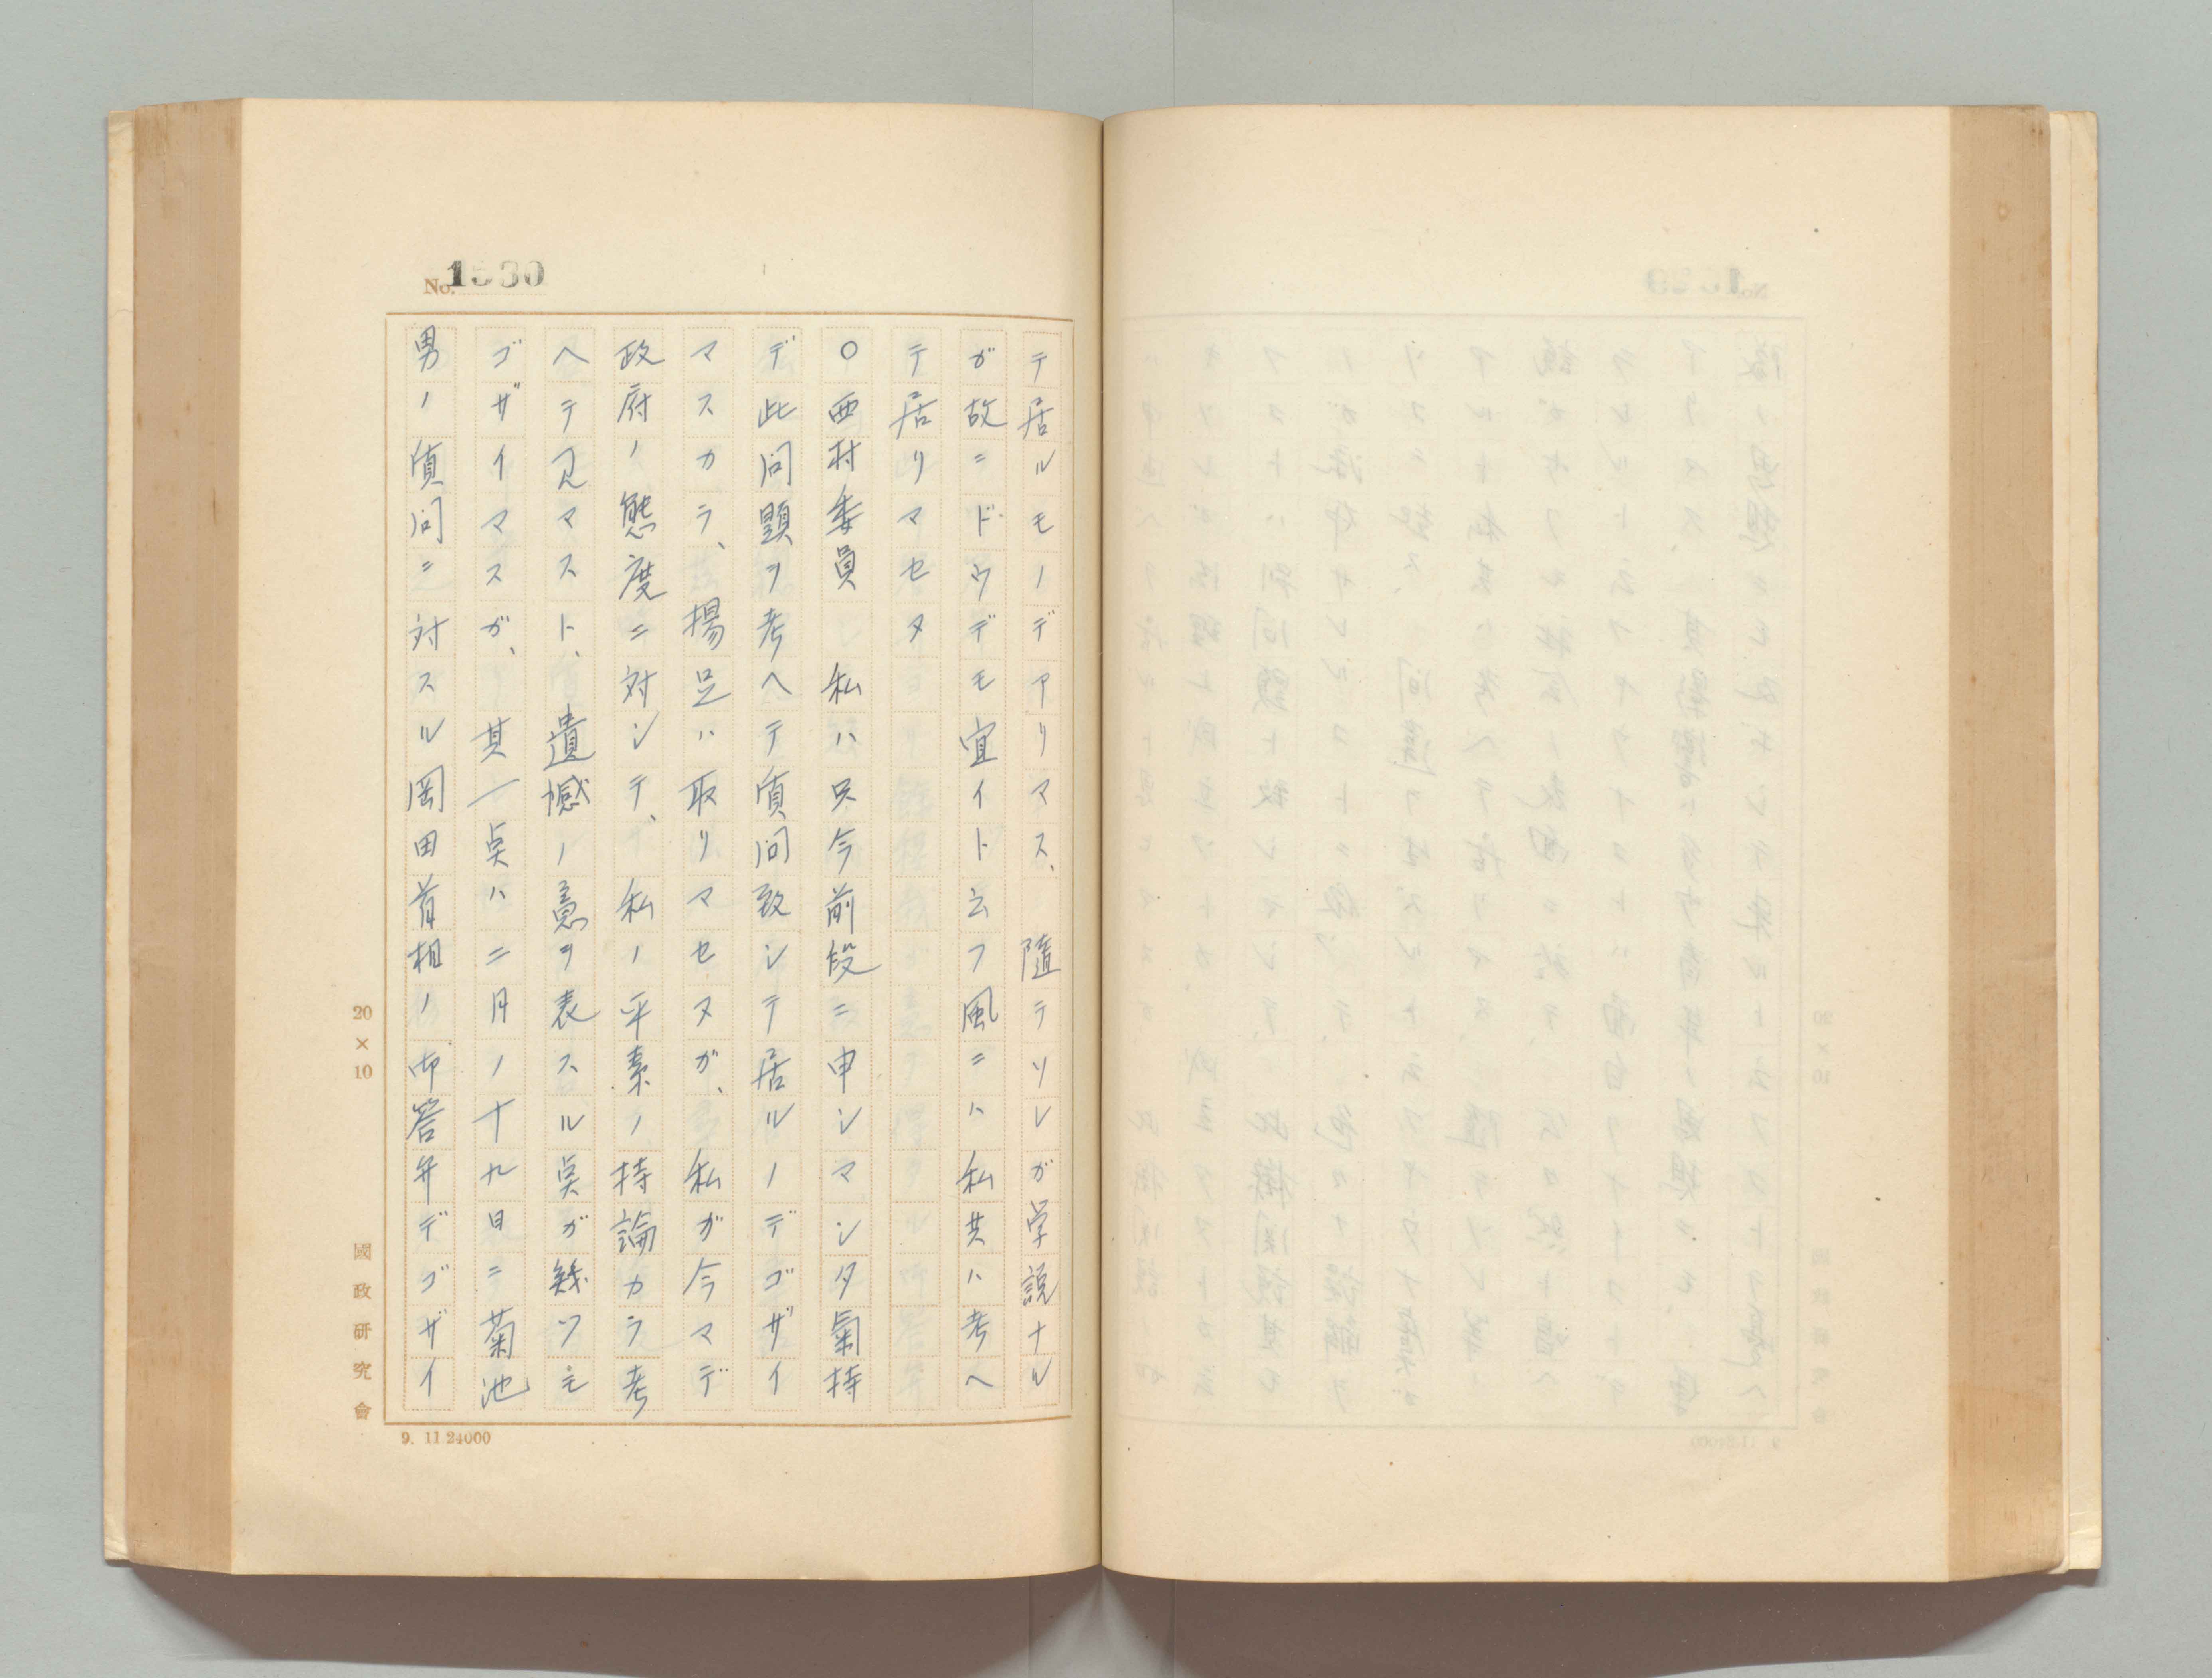 No. 1530
テ居ルモノデアリマス、隨テソレガ学説ナル
ガ故ニドウデモ宜イト云フ風ニハ私共ハ考ヘ
テ居リマセヌ
○西村委員　私ハ只今前段ニ申シマシタ氣持
デ此問題ヲ考ヘテ質問致シテ居ルノデゴザイ
マスカラ、揚足ハ取リマセヌガ、私ガ今マデ
政府ノ態度ニ対シテ、私ノ平素ノ持論カラ考
ヘテ見マスト、遺憾ノ意ヲ表スル点ガ幾ツモ
ゴザイマスガ、其一点ハ二月ノ十九日ニ菊池
男ノ質問ニ対スル岡田首相ノ御答弁デゴザイ
20×10
國政研究會
9. 11 24000